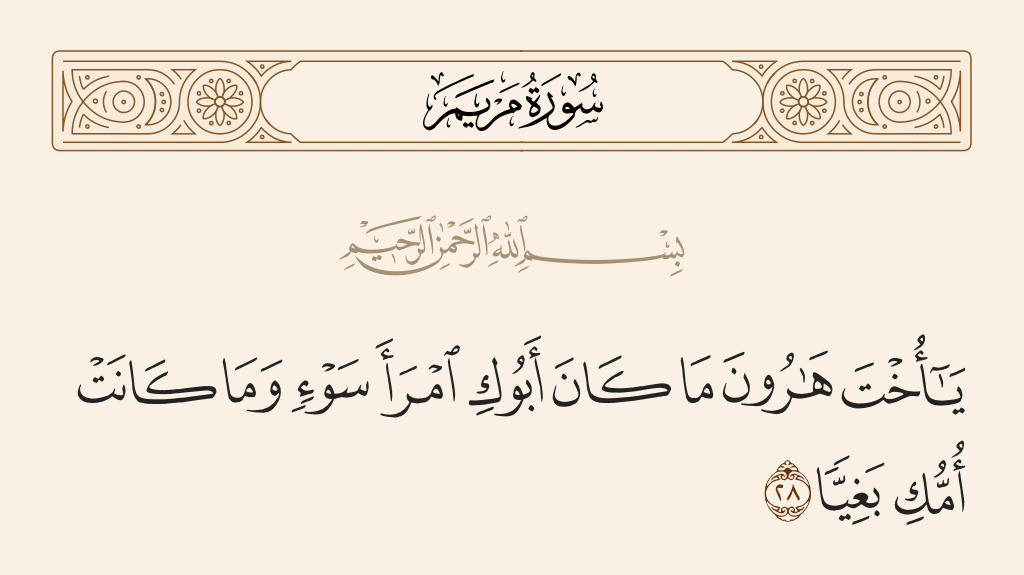 سُورَةُ مَرْيَمَ
بِسْمِ ٱللَّهِ ٱلرَّحْمَٰنِ ٱلرَّحِيمِ
يَـٰٓأُخْتَ هَـٰرُونَ مَا كَانَ أَبُوكِ ٱمْرَأَ سَوْءٍ وَمَا كَانَتْ
أُمُّكِ بَغِيًّا ٢٨